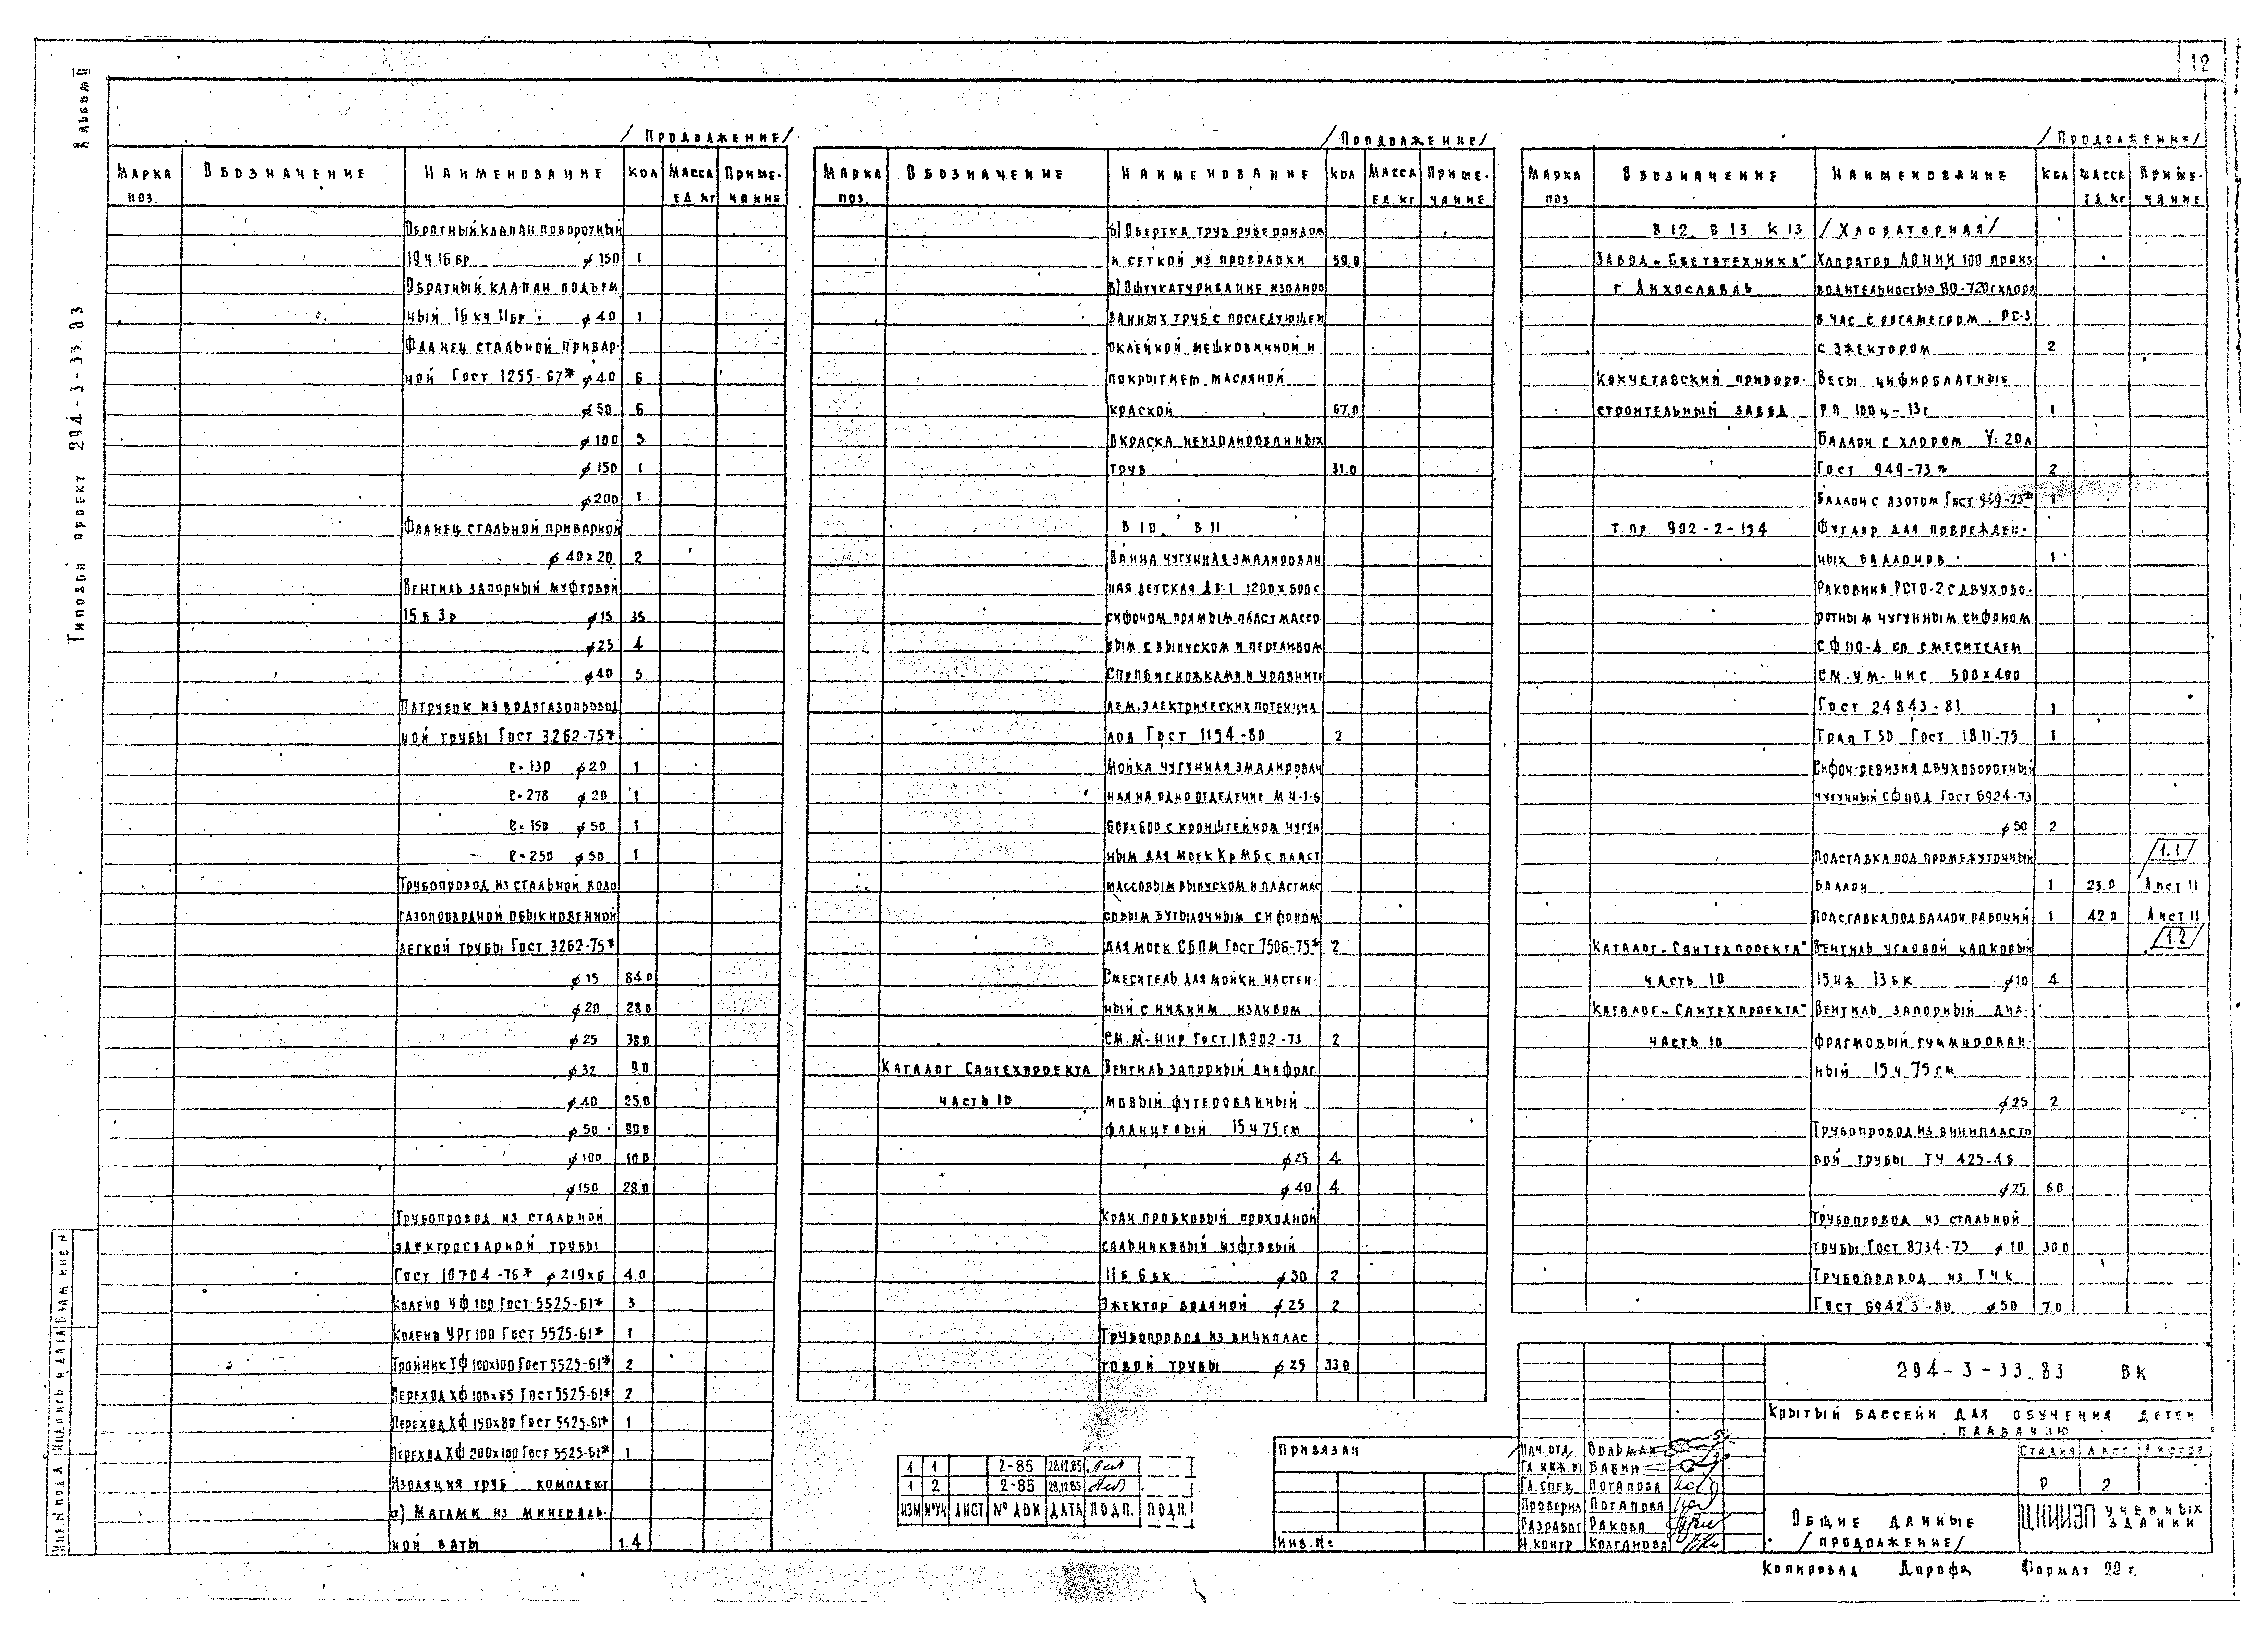 12
Альбом II
Типовой проект 294-3-33.83
/Продолжение/
Марка поз. Обозначение Наименование Кол Масса ед. кг Приме-чание
Обратный клапан поворотный
19ч16бр ϕ150 1
Обратный клапан подъем
ный 16кч11бр ϕ40 1
Фланец стальной привар-
ной Гост 1255-67* ϕ40 6
ϕ50 6
ϕ100 5
ϕ150 1
ϕ200 1
Фланец стальной приварной
ϕ40х20 2
Вентиль запорный муфтовой
15Б3р ϕ15 35
ϕ25 4
ϕ40 5
Патрубок из водогазопровод
ной трубы Гост 3262-75*
ℓ=130 ϕ20 1
ℓ=278 ϕ20 1
ℓ=150 ϕ50 1
ℓ=250 ϕ50 1
Трубопровод из стальной водо
газопроводной обыкновенной
легкой трубы Гост 3262-75*
ϕ15 84.0
ϕ20 28.0
ϕ25 38.0
ϕ32 9.0
ϕ40 25.0
ϕ50 99.0
ϕ100 10.0
ϕ150 28.0
Трубопровод из стальной
электросварной трубы
Гост 10704-76* ϕ219х6 4.0
Колено УФ100 Гост 5525-61* 3
Колено УРГ100 Гост 5525-61* 1
Тройник ТФ100х100 Гост 5525-61* 2
Переход ХФ100х65 Гост 5525-61* 2
Переход ХФ150х80 Гост 5525-61* 1
Переход ХФ200х100 Гост 5525-61* 1
Изоляция труб комплект
а) Матами из минераль-
ной ваты 1.4
/Продолжение/
Марка поз. Обозначение Наименование Кол Масса ед. кг Приме-чание
б) Обертка труб рубероидом
и сеткой из проволоки 59.0
в) Оштукатуривание изолиро
ванных труб с последующей
оклейкой мешковиной и
покрытием масляной
краской 67.0
Окраска неизолированных
труб 31.0
В10 В11
Ванна чугунная эмалирован
ная детская ДВ-1 1200х600 с
сифоном прямым пластмассо
вым с выпуском и переливом
СПВПБи с ножками и уравните
лем электрических потенциа
лов Гост 1154-80 2
Мойка чугунная эмалирован
ная на одно отделение МЧ-1-б
600х600 с кронштейном чугун
ным для моек КрМБ с пласт
массовым выпуском и пластмас
совым бутылочным сифоном
для моек СБПМ Гост 7506-75* 2
Смеситель для мойки настен-
ный с нижним изливом
См.М-ННР Гост 18902-73 2
Каталог Сантехпроекта Вентиль запорный диафраг
часть 10 мовый футерованный
фланцевый 15ч75гм
ϕ25 4
ϕ40 4
Кран пробковый проходной
сальниковый муфтовый
11Б6бк ϕ50 2
Эжектор водяной ϕ25 2
Трубопровод из винипlас
товой трубы ϕ25 33.0
/Продолжение/
Марка поз. Обозначение Наименование Кол Масса ед. кг Приме-чание
В12 В13 К13 /Хлораторная/
Завод „Светотехника" Хлоратор ЛОНИИ 100 произ-
г. Лихославль водительностью 80-720г хлора
в час с ротаметром РС-3
с эжектором 2
Кокчетавский приборо- Весы циферблатные
строительный завод РП 100ц-13г 1
Баллон с хлором V=20л
Гост 949-73* 2
Баллон с азотом Гост 949-73* 1
т.пр 902-2-154 Футляр для поврежден-
ных баллонов 1
Раковина РСТО-2 с двухобо-
ротным чугунным сифоном
СФПО-Д со смесителем
См-УМ-НИС 500х400
Гост 24843-81 1
Трап Т50 Гост 1811-75 1
Сифон-ревизия двухоборотный
чугунный СФПОД Гост 6924-73
ϕ50 2
Подставка под промежуточный 1.1
баллон 1 23.0 Лист 11
Подставка под баллон рабочий 1 42.0 Лист 11
Каталог „Сантехпроекта" Вентиль угловой цапковый 1.2
часть 10 15нж13бк ϕ10 4
Каталог „Сантехпроекта" Вентиль запорный диа-
часть 10 фрагмовый гуммирован-
ный 15ч75гм
ϕ25 2
Трубопровод из винипласто
вой трубы ТУ 425-46
ϕ25 6.0
Трубопровод из стальной
трубы Гост 8734-75 ϕ10 30.0
Трубопровод из ТЧК
Гост 6942.3-80 ϕ50 7.0
1 1 2-85 28.12.85
1 2 2-85 28.12.85
Изм №уч Лист № док Дата Подп. Подп.
Привязан
Инв.№
Нач.отд. Вольман
Гл.инж.от Бабин
Гл.спец. Потапова
Проверил Потапова
Разработ Ракова
Н.контр Колганова
294-3-33.83 ВК
Крытый бассейн для обучения детей
плаванию
Стадия Лист Листов
Р 2
Общие данные
/продолжение/
ЦНИИЭП учебных зданий
Копировал Дарофа Формат 22г.
Инв.№подл Подпись и дата Взам инв №